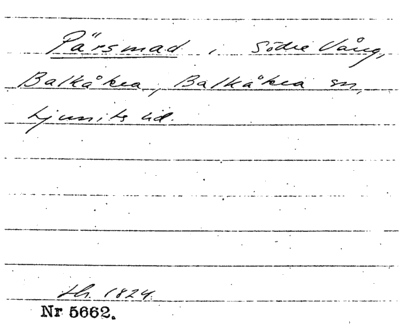 Pärsmad, Södre Vång,
Balkåkra, Balkåkra sn,
Ljunits hd.
1824.
Nr 5662.